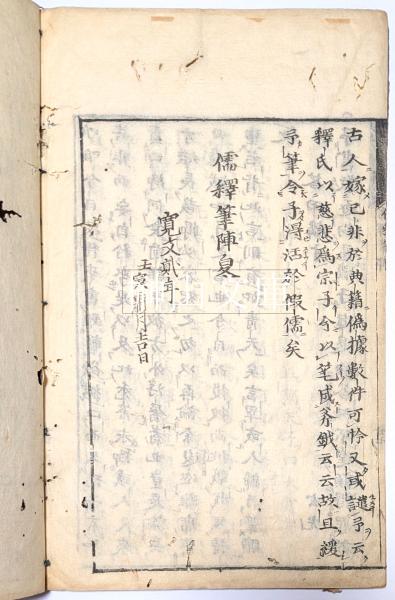 古人嫁己非於典籍偽據數件可怜又或譴予云
釋氏以慈悲為宗子今以筆成斧鉞云云故且緩
予筆令予得活於假儒矣
儒釋筆陣 夏
寛文貳年
壬寅 月吉日